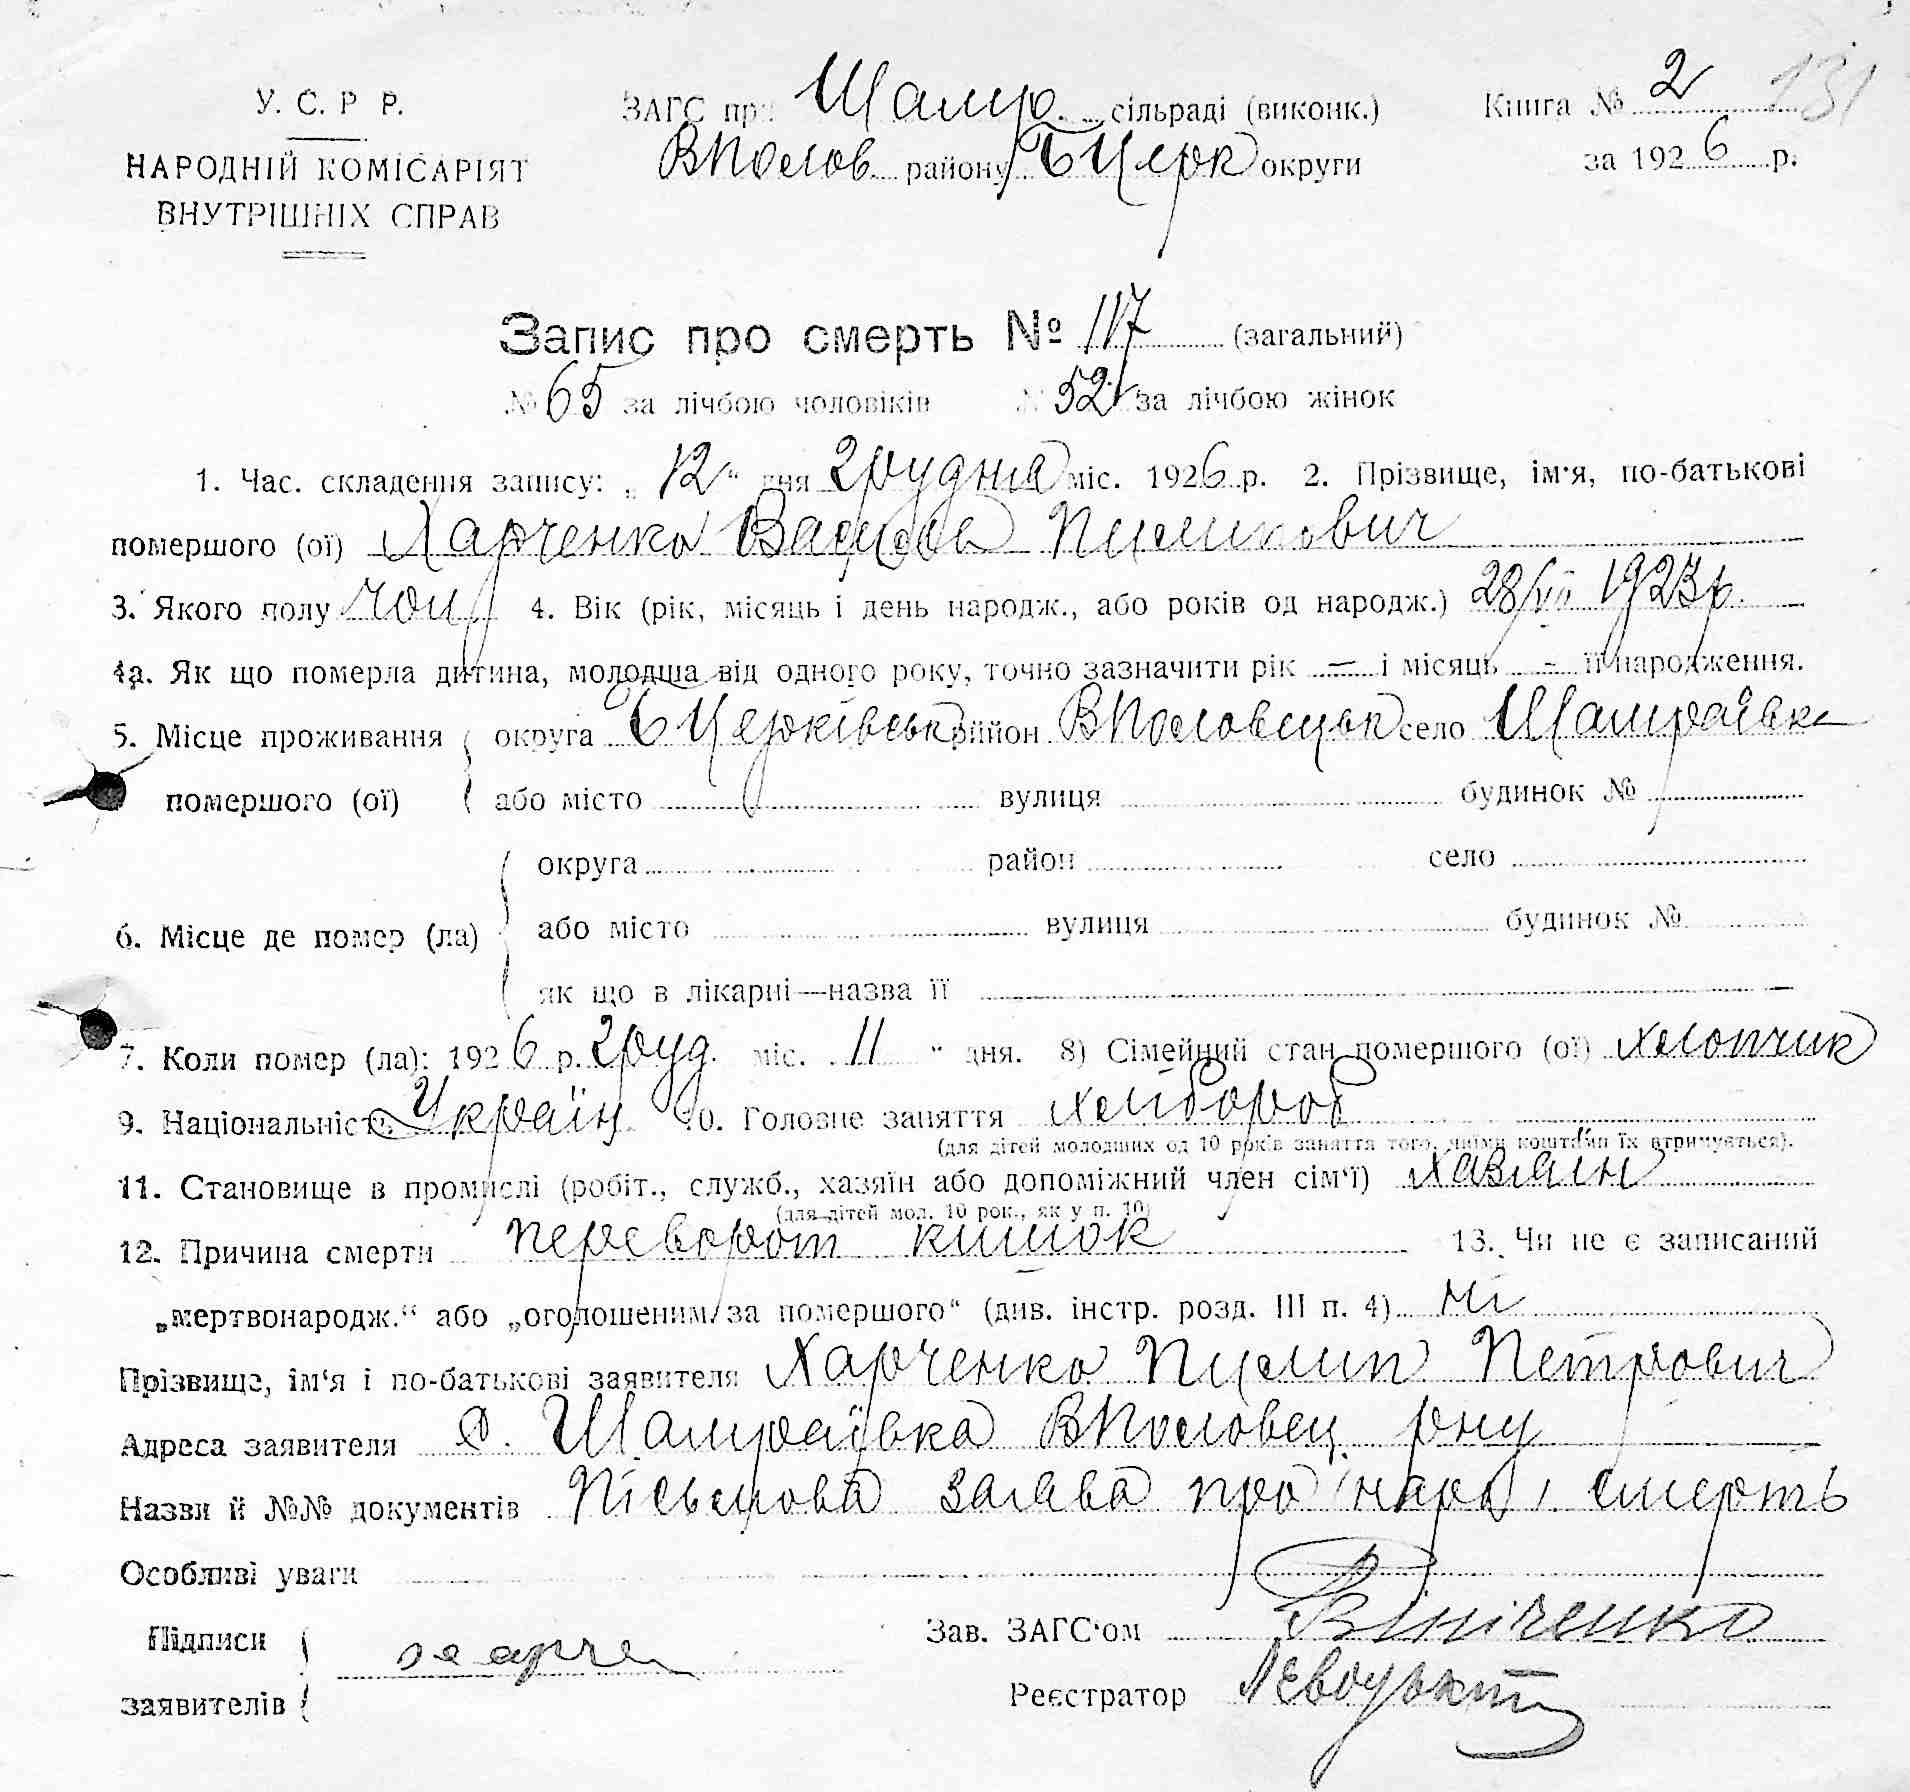 У. С. Р Р.
НАРОДНІЙ КОМІСАРІЯТ
ВНУТРІШНІХ СПРАВ
ЗАГС при Шамр. сільраді (виконк.)
ВПолов району БЦерк округи
Книга № 2 131
за 1926 р.
Запис про смерть № 117 (загальний)
№ 65 за лічбою чоловіків № 52 за лічбою жінок
1. Час. складення запису: „12“ дня Грудня міс. 1926 р. 2. Прізвище, ім'я, по-батькові
помершого (ої) Харченко Василь Пилипович
3. Якого полу чол 4. Вік (рік, місяць і день народж., або років од народж.) 28/VII 1923 р.
4а. Як що померла дитина, молодша від одного року, точно зазначити рік — і місяць - її народження.
5. Місце проживання помершого (ої) округа БЦерківськ район ВПоловецьк село Шамраївка
або місто вулиця будинок №
6. Місце де помер (ла) округа район село
або місто вулиця будинок №
як що в лікарні—назва її —
7. Коли помер (ла): 1926 р. Груд. міс. 11 “ дня. 8) Сімейний стан помершого (ої) хлопчик
9. Національність Україн 10. Головне заняття хлібороб
(для дітей молодших од 10 років заняття того, чиїми коштами їх втримується).
11. Становище в промислі (робіт., служб., хазяїн або допоміжний член сім'ї) хазяїн
(для дітей мол. 10 рок., як у п. 10)
12. Причина смерти переворот кишок 13. Чи не є записаний
„мертвонародж.“ або „оголошеним за помершого“ (див. інстр. розд. III п. 4) ні
Прізвище, ім'я і по-батькові заявителя Харченко Пилип Петрович
Адреса заявителя с. Шамраївка ВПоловец. рну
Назви й №№ документів Пісьмова заява про нар. і смерть
Особливі уваги
Підписи заявителів Харче
Зав. ЗАГС'ом Вініченко
Реєстратор